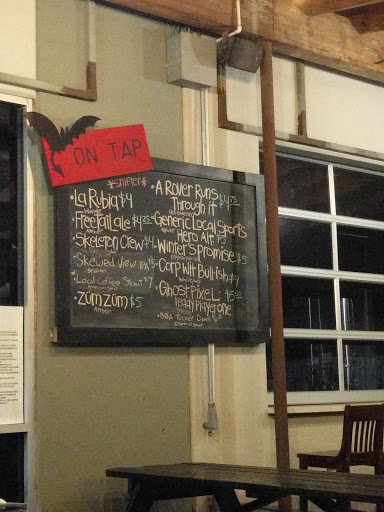 ON TAP
*SNIFTER*
• La Rubia $4
• Freetail ale $4.25
Amber
• Skeleton Crew $4
• Skewed View IPA
Session
• Local Coffee Stout $7
• Zum Zum $5
Amber
• A Rover Runs
Through it $4.75
• Generic Local Sports
Hero Alt $5
• Winter's Promise $5
• Corp Wit Bullish $4
• Ghost Pixel $5.25
Teddy Player One